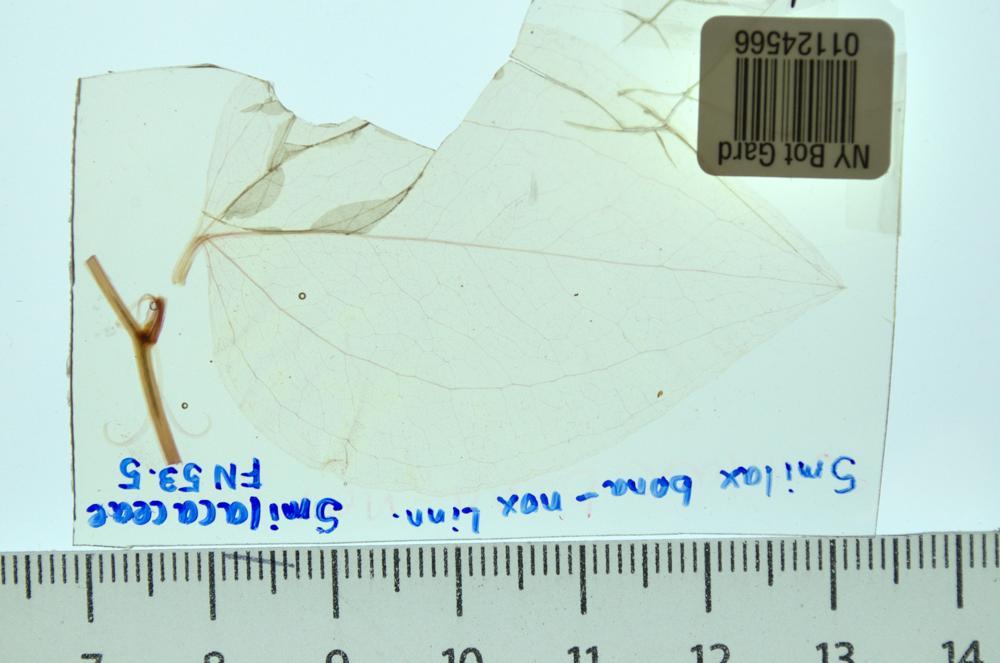 NY Bot Gard
01124566
Smilax bona-nox Linn.
Smilacaceae
FN 53.5
7 8 9 10 11 12 13 14